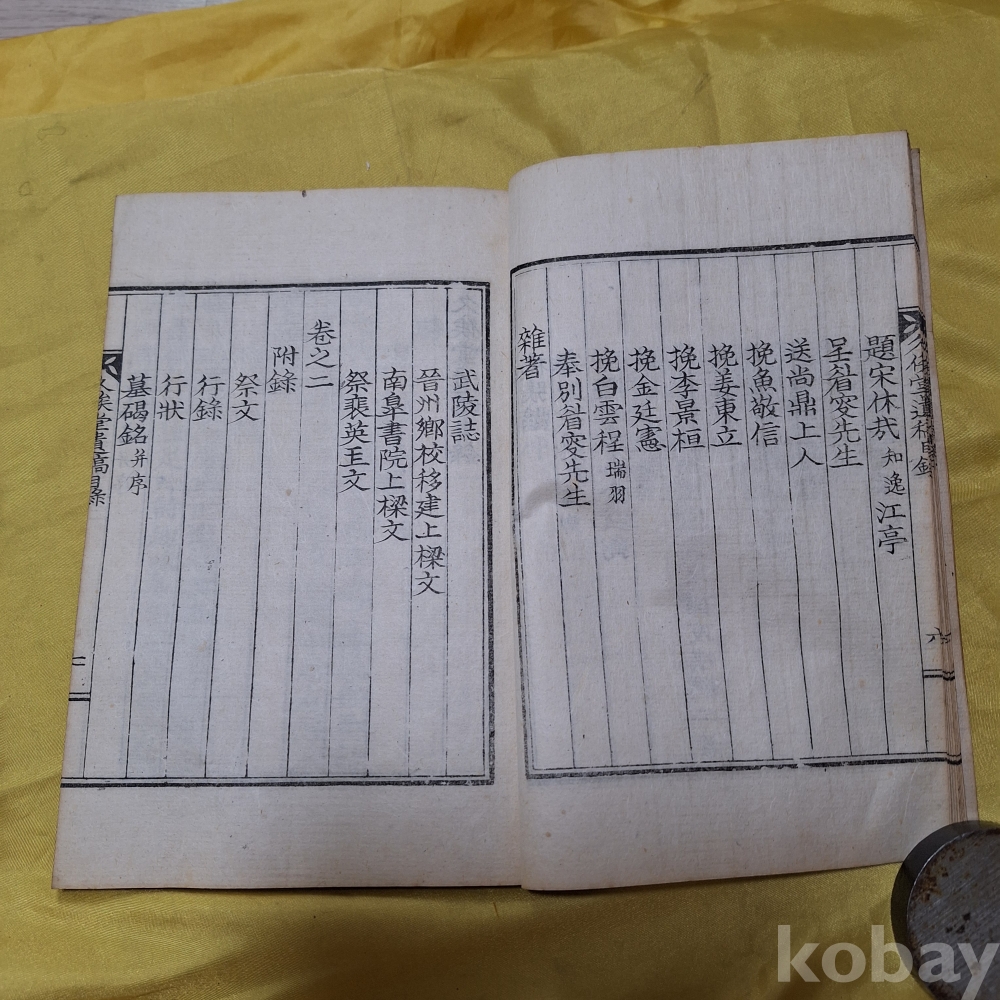 題宋休哉知逸江亭
呈省窔先生
送尚鼎上人
挽魚敬信
挽姜東立
挽李景桓
挽金廷憲
挽白雲程瑞羽
奉別省窔先生
雜著
武陵誌
晉州鄉校移建上樑文
南皋書院上樑文
祭裵英王文
卷之二
附錄
祭文
行錄
行狀
墓碣銘并序
kobay